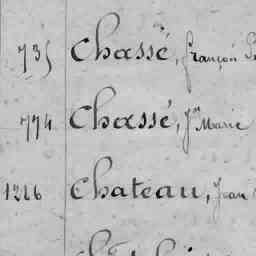 735 Chassé, françois
774 Chassé, Jn Marie
1226 Chateau, Jean